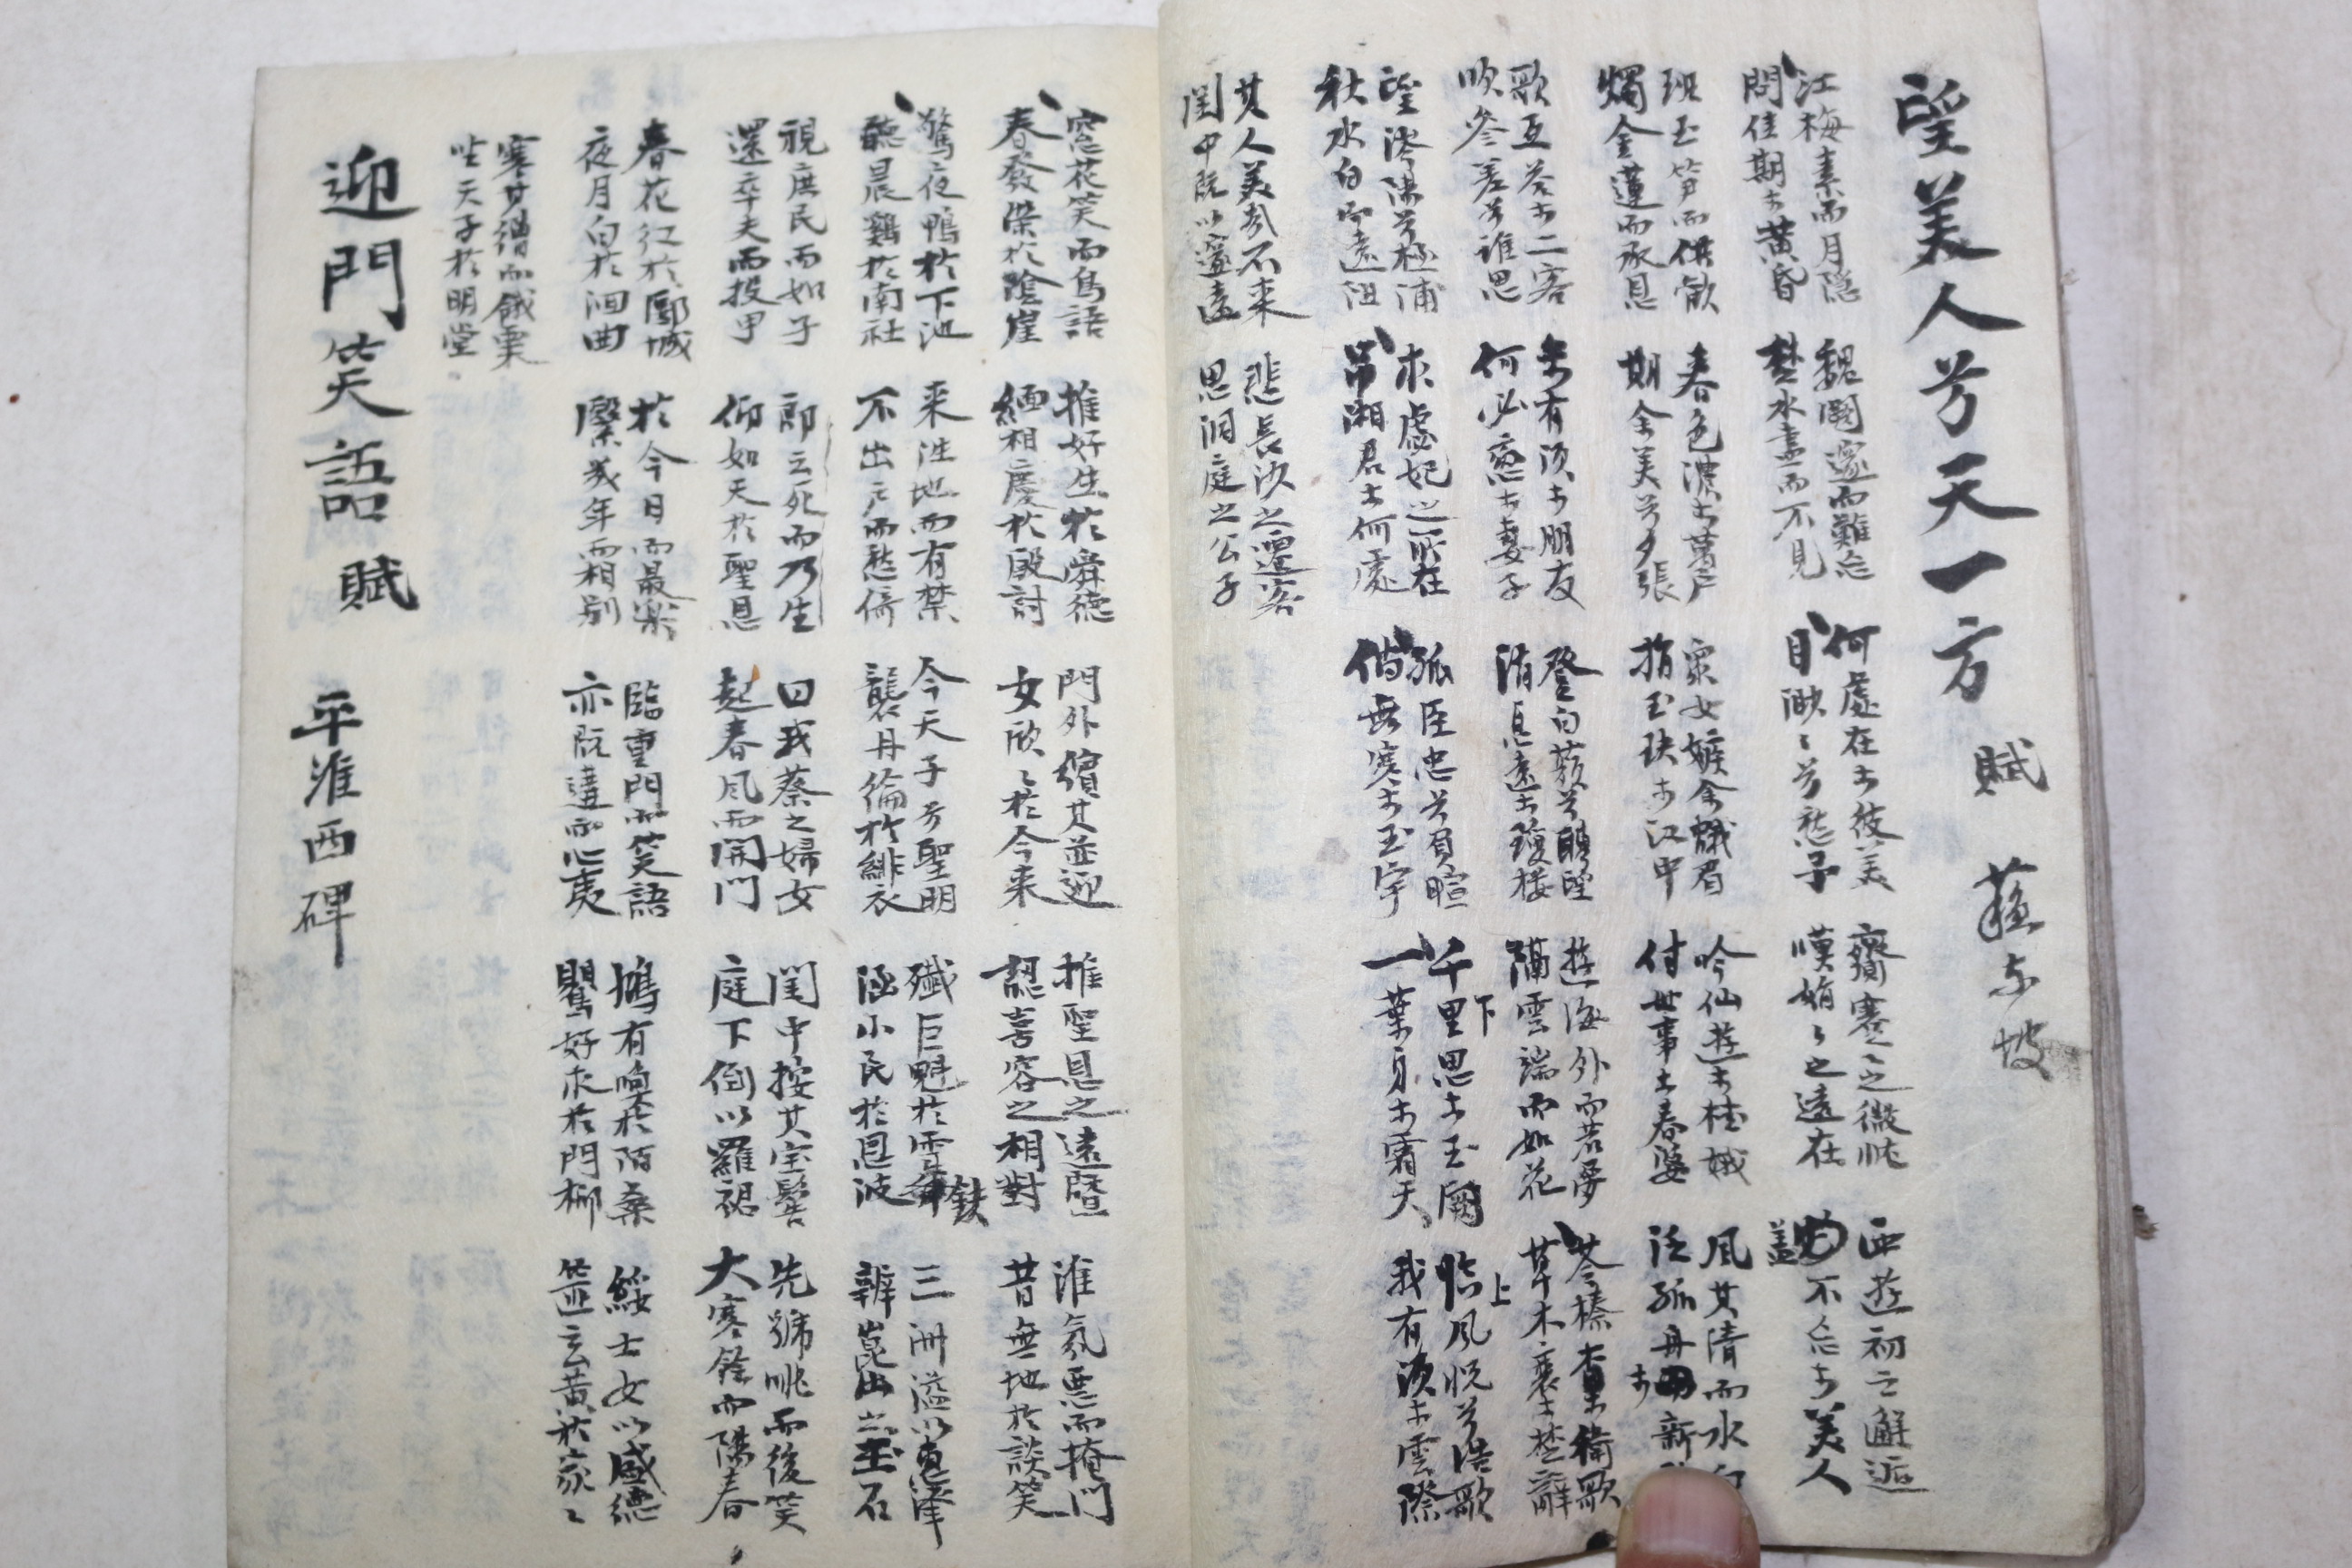 望美人兮天一方 賦 蘓东坡
江梅素而月隐
問佳期兮黃昏
魏闕邈而難忘
楚水盡而不見
何處在兮彼美
目渺々兮愁予
齋蹇々之微忱
嘆娟々之遠在
西遊初之邂逅
盖不忘兮美人
班玉笋而供歡
燭金蓮而承恩
春色濃兮萬戶
期余美兮夕張
衆女嫉余蛾眉
指玉玦兮江中
吟仙遊兮桂娥
付世事兮春婆
風其清而水白
泛孤舟兮新
歌互答兮二客
吹参差兮誰思
余有須兮朋友
何必戀兮妻子
登白蘋兮騁望
消息遠兮瓊楼
遊海外而若夢
隔雲端而如花
苓榛杳兮衛歌
草木裹兮楚辭
望涔陽兮極浦
秋水白而遠阻
求虙妃之所在
吊湘君兮何處
孤臣忠兮負暄
倘無寒兮玉宇
下
千里思兮玉闕
一葉身兮霜天
上
臨風怳兮浩歌
我有須兮雲際
其人美兮不来
閨中既以邃遠
悲長沙之遷客
思洞庭之公子
窓花笑而鳥語
春發榮於陰崖
推好生於舜德
緬相慶於殷討
門外繽其並迎
女欣々於今来
推聖恩之遠曁
認喜容之相對
淮氛悪而掩門
昔無地於談笑
驚夜鴨於下池
聽晨鷄於南社
来泩地而有禁
不出戶而愁倚
今天子兮聖明
襲丹綸於緋衣
殲巨魁於雪鉄
涵小民於恩波
三洲溢以恵澤
辨崑出之玉石
視庶民而如子
還卒夫而投甲
郎云死而乃生
仰如天於聖恩
曰我蔡之婦女
起春風而開門
閨中按其宝髻
庭下倒以羅裙
先號咷而後笑
大寒餘而陽春
春花红於郾城
夜月白於洄曲
於今日而最楽
緊幾年而相别
臨重門而笑語
亦既遘而心夷
鳩有喚於陌桑
鸎好求於門柳
綏士女以感德
筐玄黄於家々
寒其繒而餓粟
坐天子於明堂
迎門笑語賦 平淮西碑